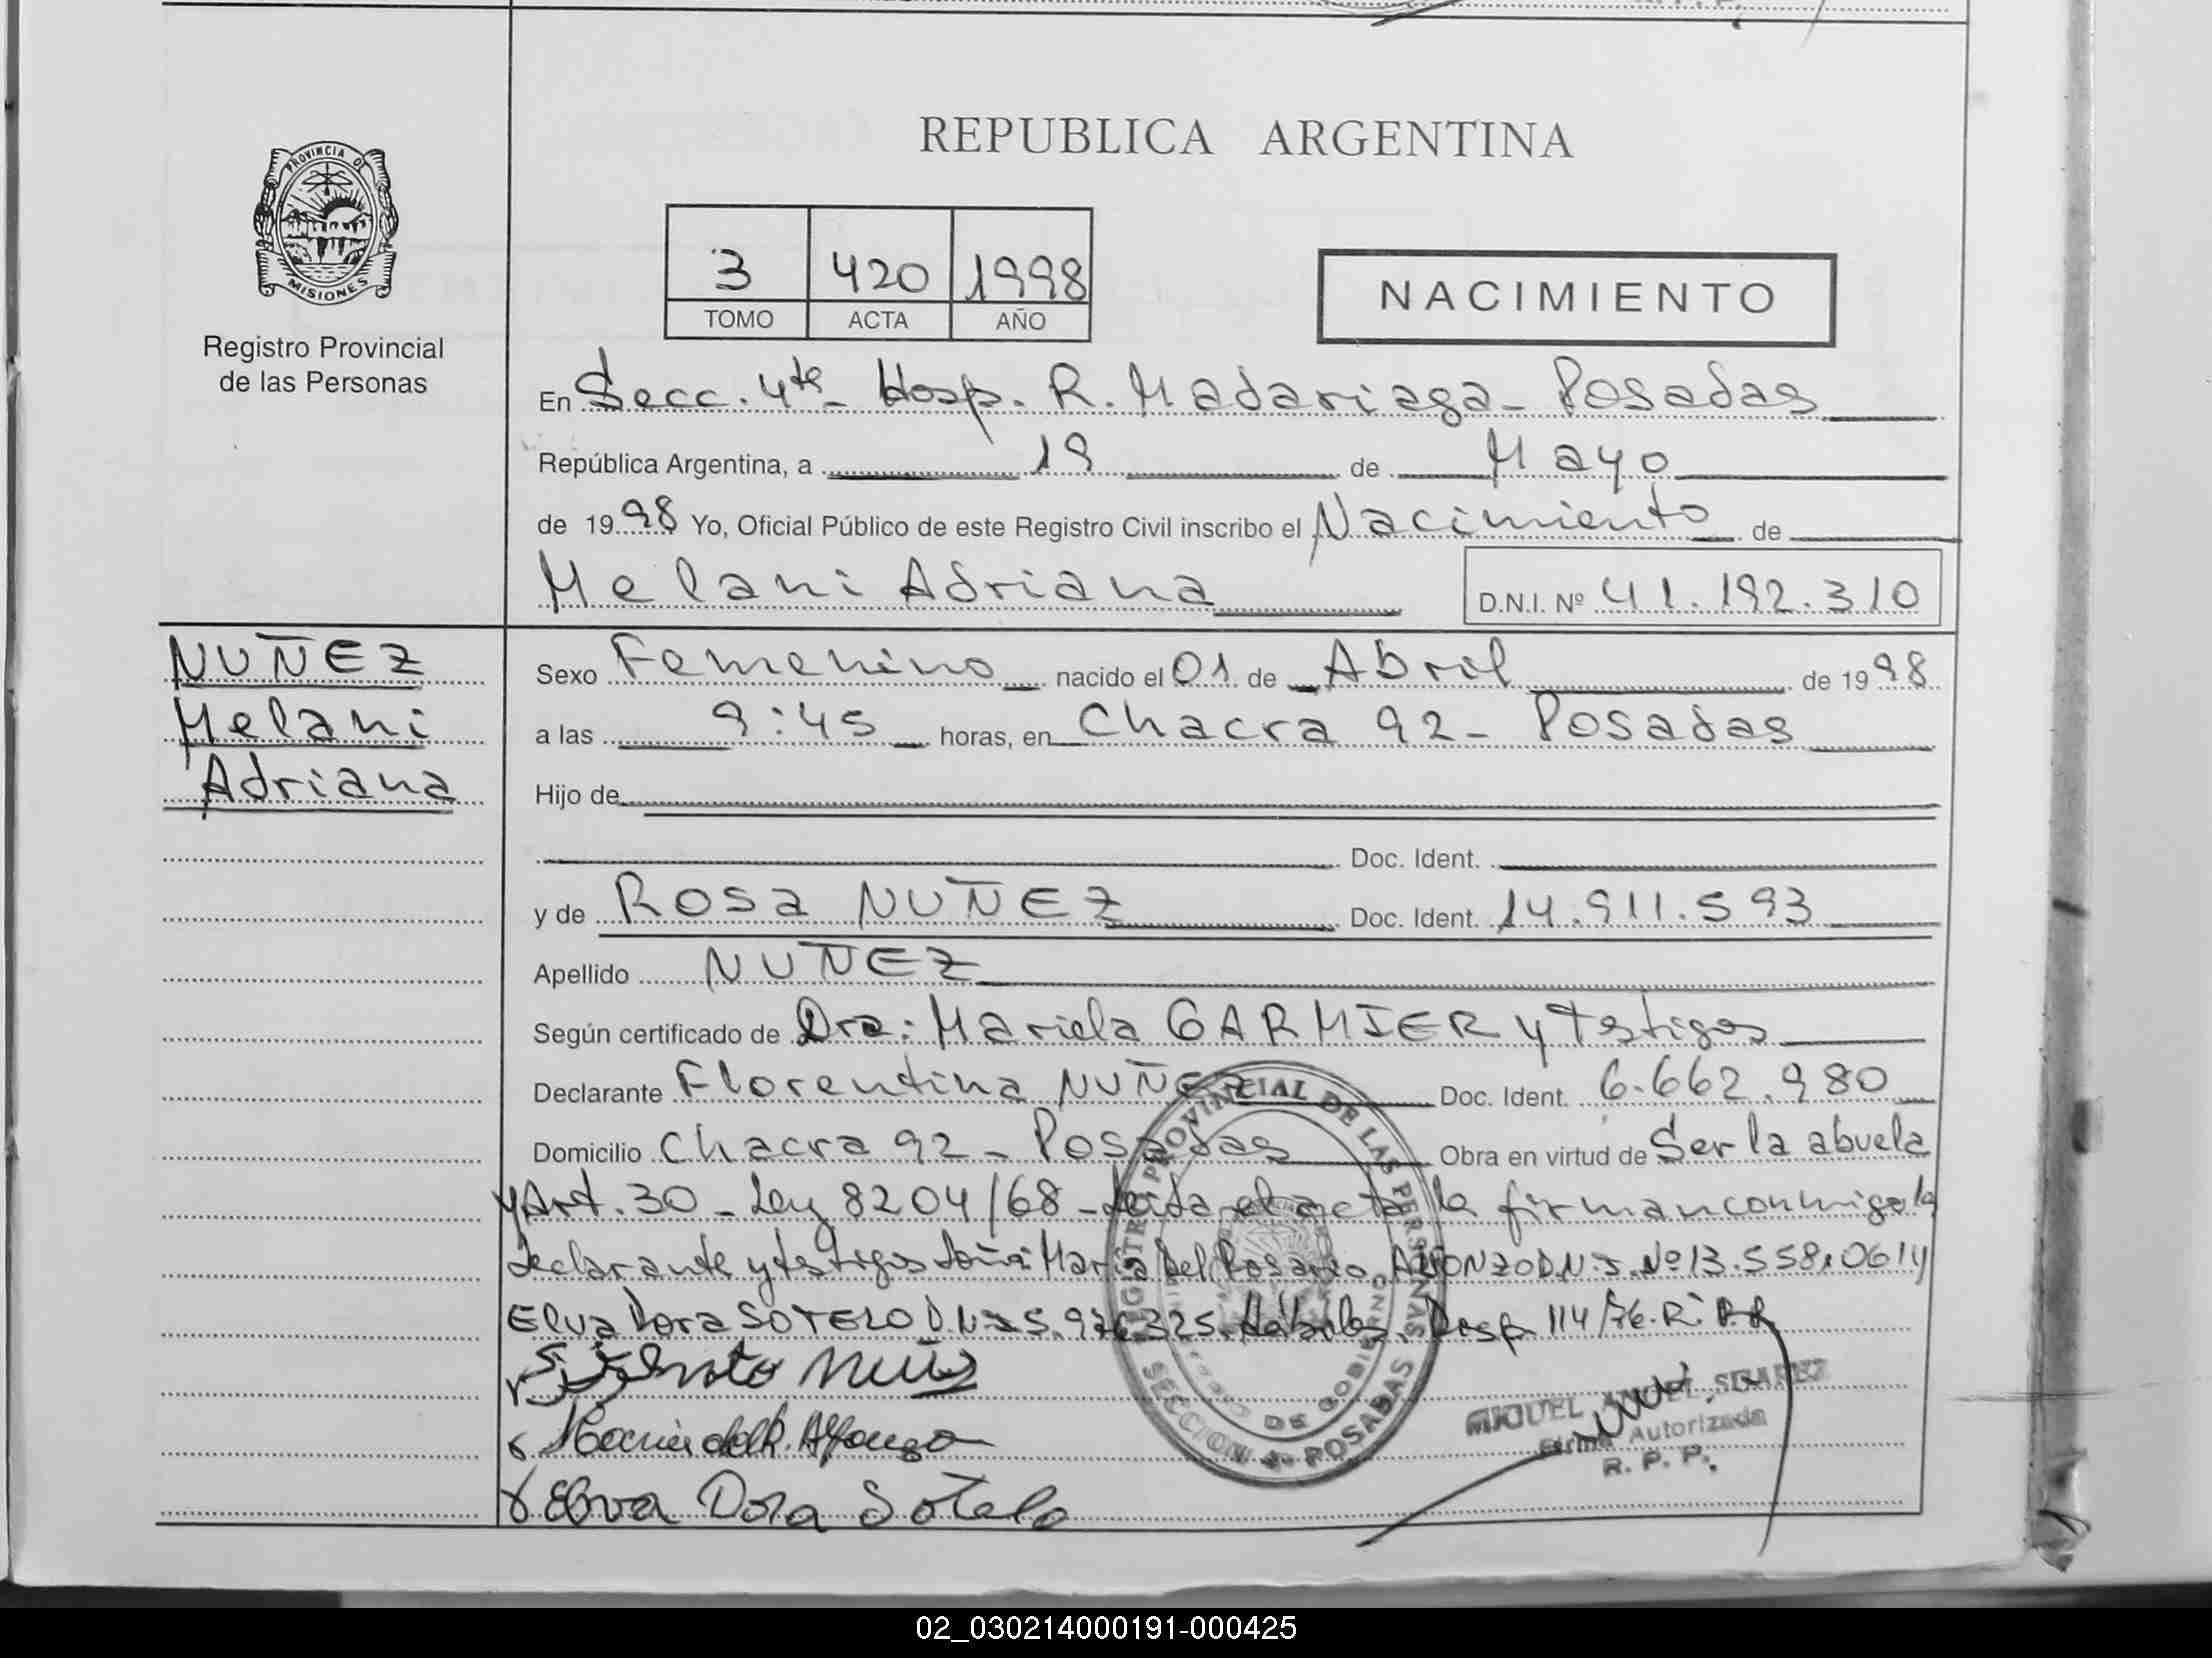 REPUBLICA ARGENTINA
PROVINCIA DE
MISIONES
Registro Provincial
de las Personas
3 420 1998
TOMO ACTA AÑO
NACIMIENTO
En Secc. 4ta - Hosp. R. Madariaga - Posadas
República Argentina, a 19 de Mayo
de 1998 Yo, Oficial Público de este Registro Civil inscribo el Nacimiento de
Melani Adriana D.N.I. Nº 41.192.310
NUÑEZ
Melani
Adriana
Sexo Femenino nacido el 01 de Abril de 1998
a las 9:45 horas, en Chacra 92 - Posadas
Hijo de
Doc. Ident.
y de Rosa NUÑEZ Doc. Ident. 14.911.593
Apellido NUÑEZ
Según certificado de Dra: Mariela GARMIER y Testigos
Declarante Florentina NUÑEZ Doc. Ident. 6.662.980
Domicilio Chacra 92 - Posadas Obra en virtud de Ser la abuela
y Art. 30 - Ley 8204/68 - Leida el acta la firman conmigo la
declarante y testigos doña: Maria Del Rosario D.N.I. Nº 13.558.061 y
Elva Dora SOTELO D.N.I. 5. 325. Hábiles. Disp. 114/76. R.P.P.
REGISTRO PROVINCIAL DE LAS PERSONAS
SECCION 4ª POSADAS
DE GOBIERNO
Maria del R. Alfonzo
Elva Dora Sotelo
MIGUEL ANGEL SUAREZ
Firma Autorizada
R. P. P.
02_030214000191-000425